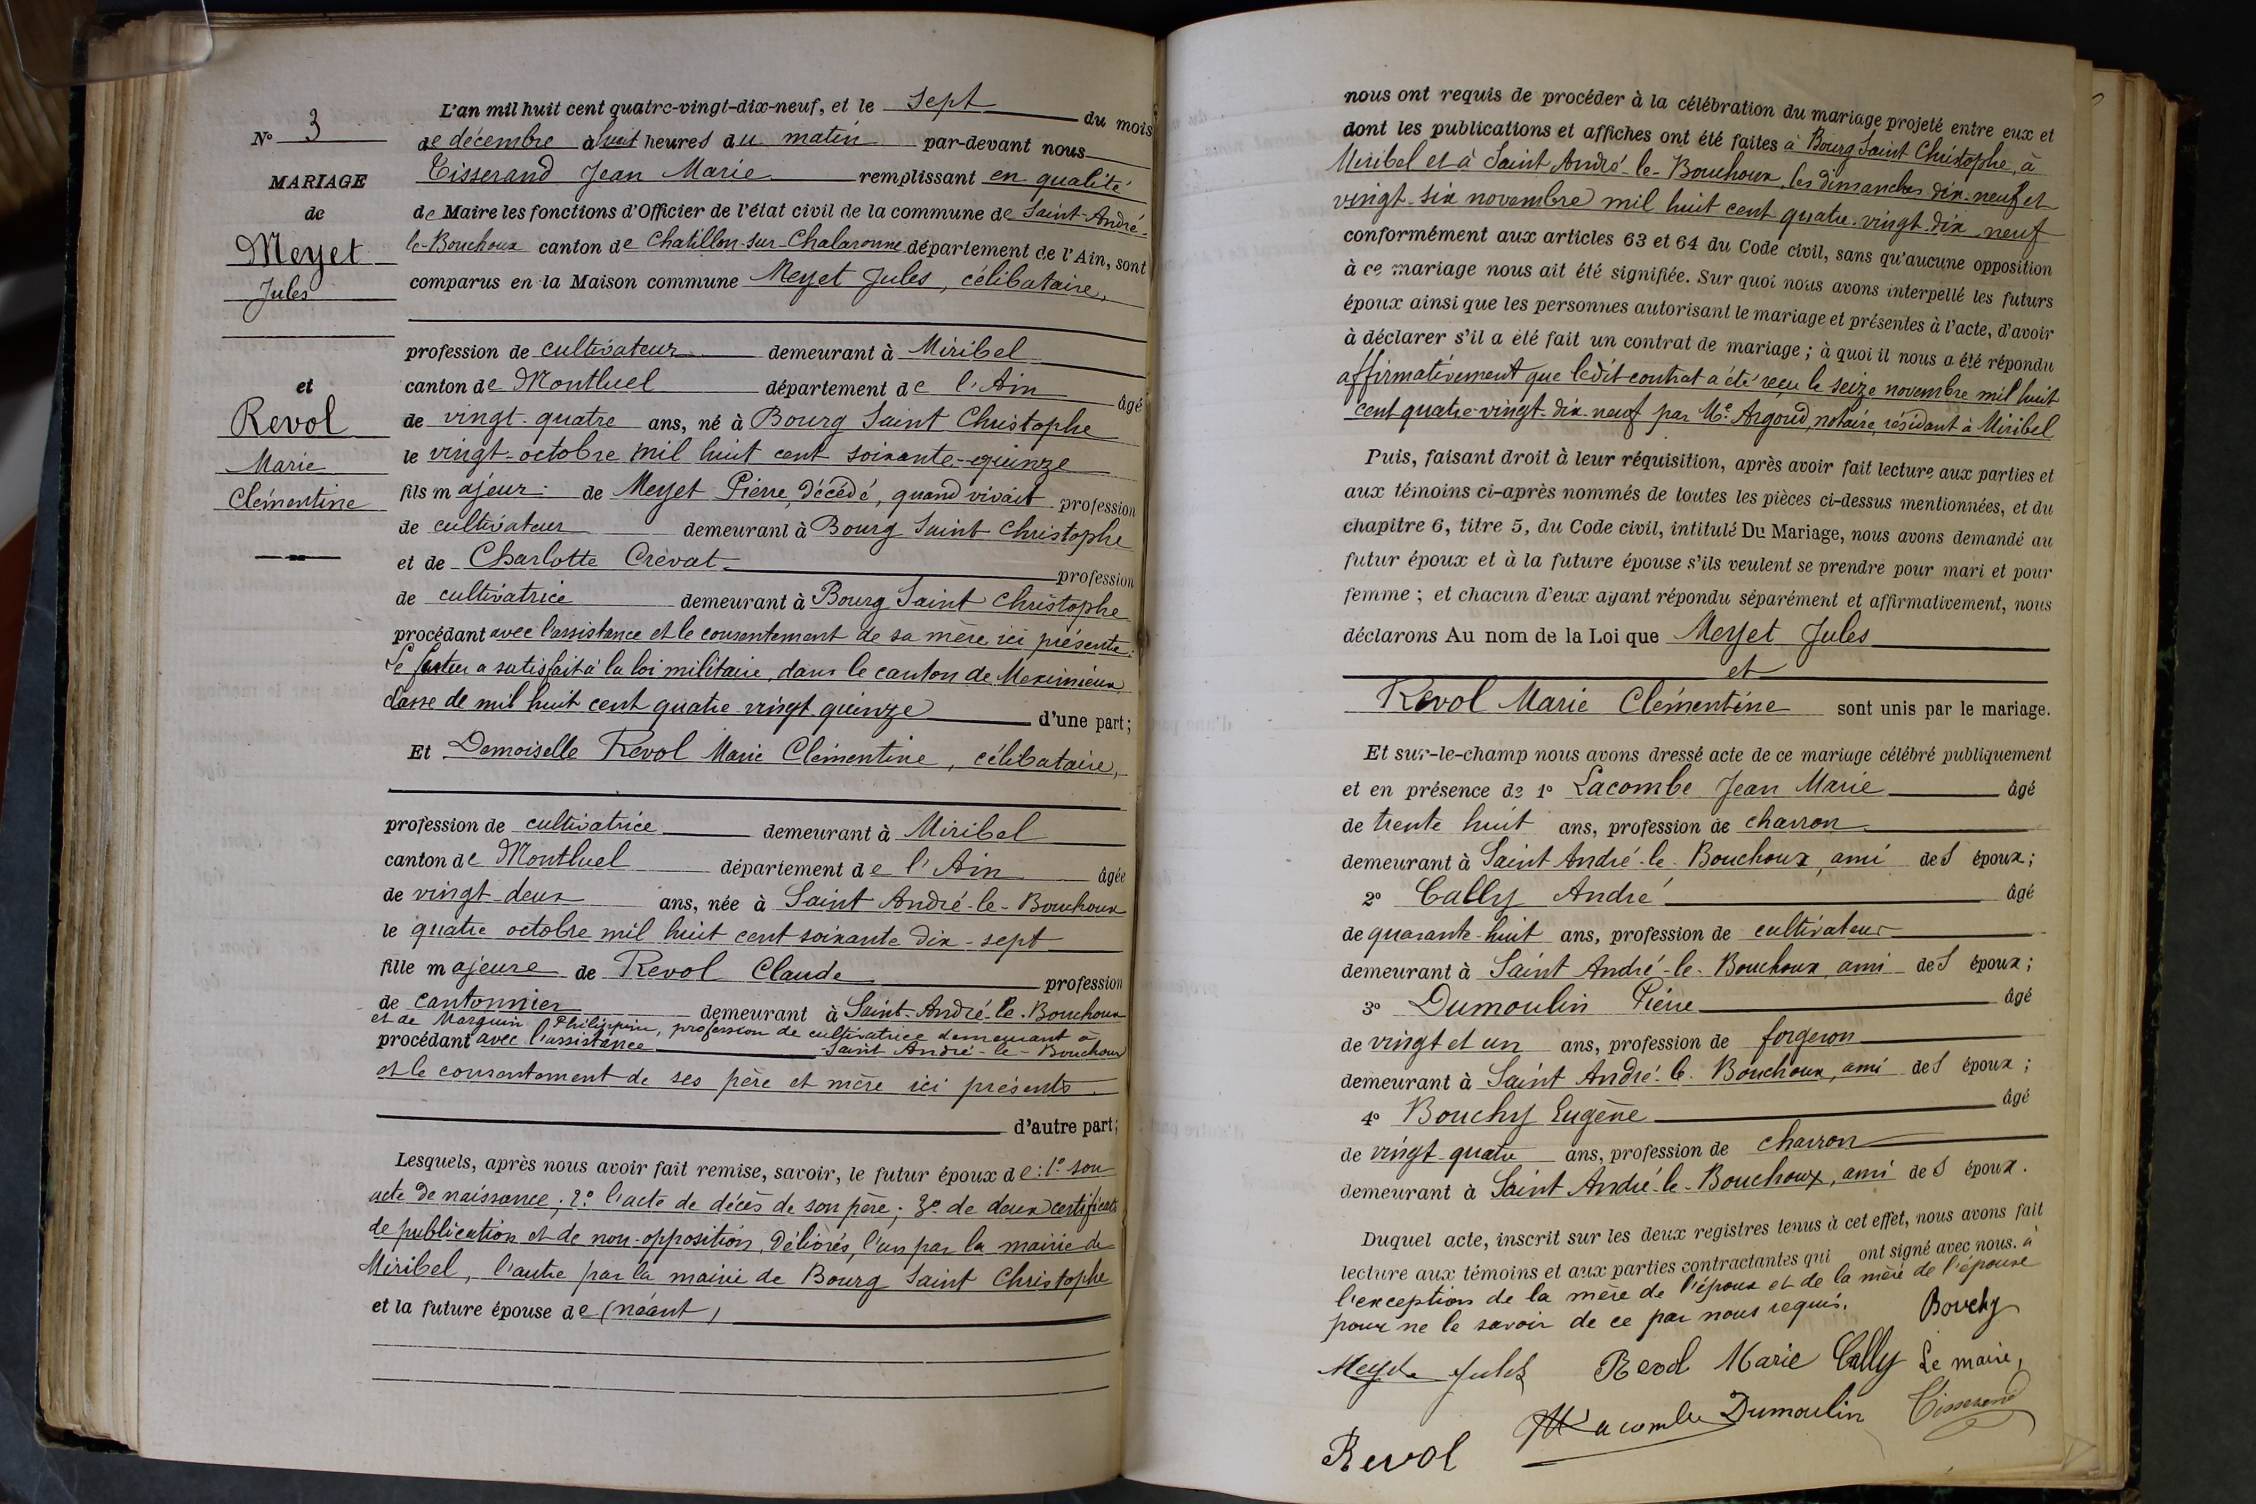 N° 3
MARIAGE
de
Meyet
Jules
et
Revol
Marie
Clémentine
L'an mil huit cent quatre-vingt-dix-neuf, et le sept du mois
de décembre à huit heures du matin par-devant nous
Tisserand Jean Marie remplissant en qualité
de Maire les fonctions d'Officier de l'état civil de la commune de Saint-André-
le-Bouchoux canton de Chatillon-sur-Chalaronne département de l'Ain, sont
comparus en la Maison commune Meyet Jules, célibataire,
profession de cultivateur demeurant à Miribel
canton de Montluel département de l'Ain âgé
de vingt-quatre ans, né à Bourg Saint Christophe
le vingt-octobre mil huit cent soixante-quinze
fils majeur de Meyet Pierre, décédé, quand vivait profession
de cultivateur demeurant à Bourg Saint Christophe
et de Charlotte Crévat profession
de cultivatrice demeurant à Bourg Saint Christophe
procédant avec l'assistance et le consentement de sa mère ici présente.
Le futur a satisfait à la loi militaire, dans le canton de Meximieux
classe de mil huit cent quatre-vingt quinze d'une part;
Et Demoiselle Revol Marie Clémentine, célibataire,
profession de cultivatrice demeurant à Miribel
canton de Montluel département de l'Ain âgée
de vingt-deux ans, née à Saint André-le-Bouchoux
le quatre octobre mil huit cent soixante dix-sept
fille majeure de Revol Claude profession
de cantonnier demeurant à Saint-André-le-Bouchoux
et de Marguin Philippine, profession de cultivatrice demeurant à
Saint André-le-Bouchoux
procédant avec l'assistance
et le consentement de ses père et mère ici présents
d'autre part;
Lesquels, après nous avoir fait remise, savoir, le futur époux de: 1° son
acte de naissance; 2° l'acte de décès de son père; 3° de deux certificats
de publication et de non-opposition, délivrés, l'un par la mairie de
Miribel, l'autre par la mairie de Bourg Saint Christophe
et la future épouse de (néant)
nous ont requis de procéder à la célébration du mariage projeté entre eux et
dont les publications et affiches ont été faites à Bourg Saint Christophe, à
Miribel et à Saint André-le-Bouchoux, les dimanches dix-neuf et
vingt-six novembre mil huit cent quatre-vingt-dix-neuf
conformément aux articles 63 et 64 du Code civil, sans qu'aucune opposition
à ce mariage nous ait été signifiée. Sur quoi nous avons interpellé les futurs
époux ainsi que les personnes autorisant le mariage et présentes à l'acte, d'avoir
à déclarer s'il a été fait un contrat de mariage; à quoi il nous a été répondu
affirmativement que ledit contrat a été reçu le seize novembre mil huit
cent quatre-vingt-dix-neuf par Me Argoud, notaire, résidant à Miribel
Puis, faisant droit à leur réquisition, après avoir fait lecture aux parties et
aux témoins ci-après nommés de toutes les pièces ci-dessus mentionnées, et du
chapitre 6, titre 5, du Code civil, intitulé Du Mariage, nous avons demandé au
futur époux et à la future épouse s'ils veulent se prendre pour mari et pour
femme; et chacun d'eux ayant répondu séparément et affirmativement, nous
déclarons Au nom de la Loi que Meyet Jules
et
Revol Marie Clémentine sont unis par le mariage.
Et sur-le-champ nous avons dressé acte de ce mariage célébré publiquement
et en présence de 1° Lacombe Jean Marie âgé
de trente huit ans, profession de charron
demeurant à Saint André-le-Bouchoux, ami des époux;
2° Cally André âgé
de quarante-huit ans, profession de cultivateur
demeurant à Saint André-le-Bouchoux, ami des époux;
3° Dumoulin Pierre âgé
de vingt et un ans, profession de forgeron
demeurant à Saint André-le-Bouchoux, ami des époux;
4° Bouchy Eugène âgé
de vingt-quatre ans, profession de charron
demeurant à Saint André-le-Bouchoux, ami des époux.
Duquel acte, inscrit sur les deux registres tenus à cet effet, nous avons fait
lecture aux témoins et aux parties contractantes qui ont signé avec nous. à
l'exception de la mère de l'époux et de la mère de l'épouse
pour ne le savoir de ce par nous requis.
Bouchy
Meyet Jules Revol Marie Cally Le maire,
Lacombe Dumoulin Tisserand
Revol